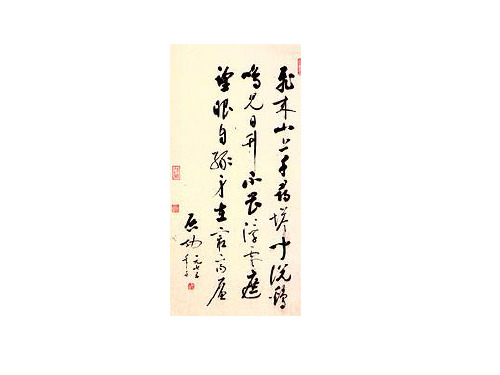 飛来山上千尋塔聞説鷄
鳴見日升不畏浮雲遮
望眼自緣身在最高層
启功